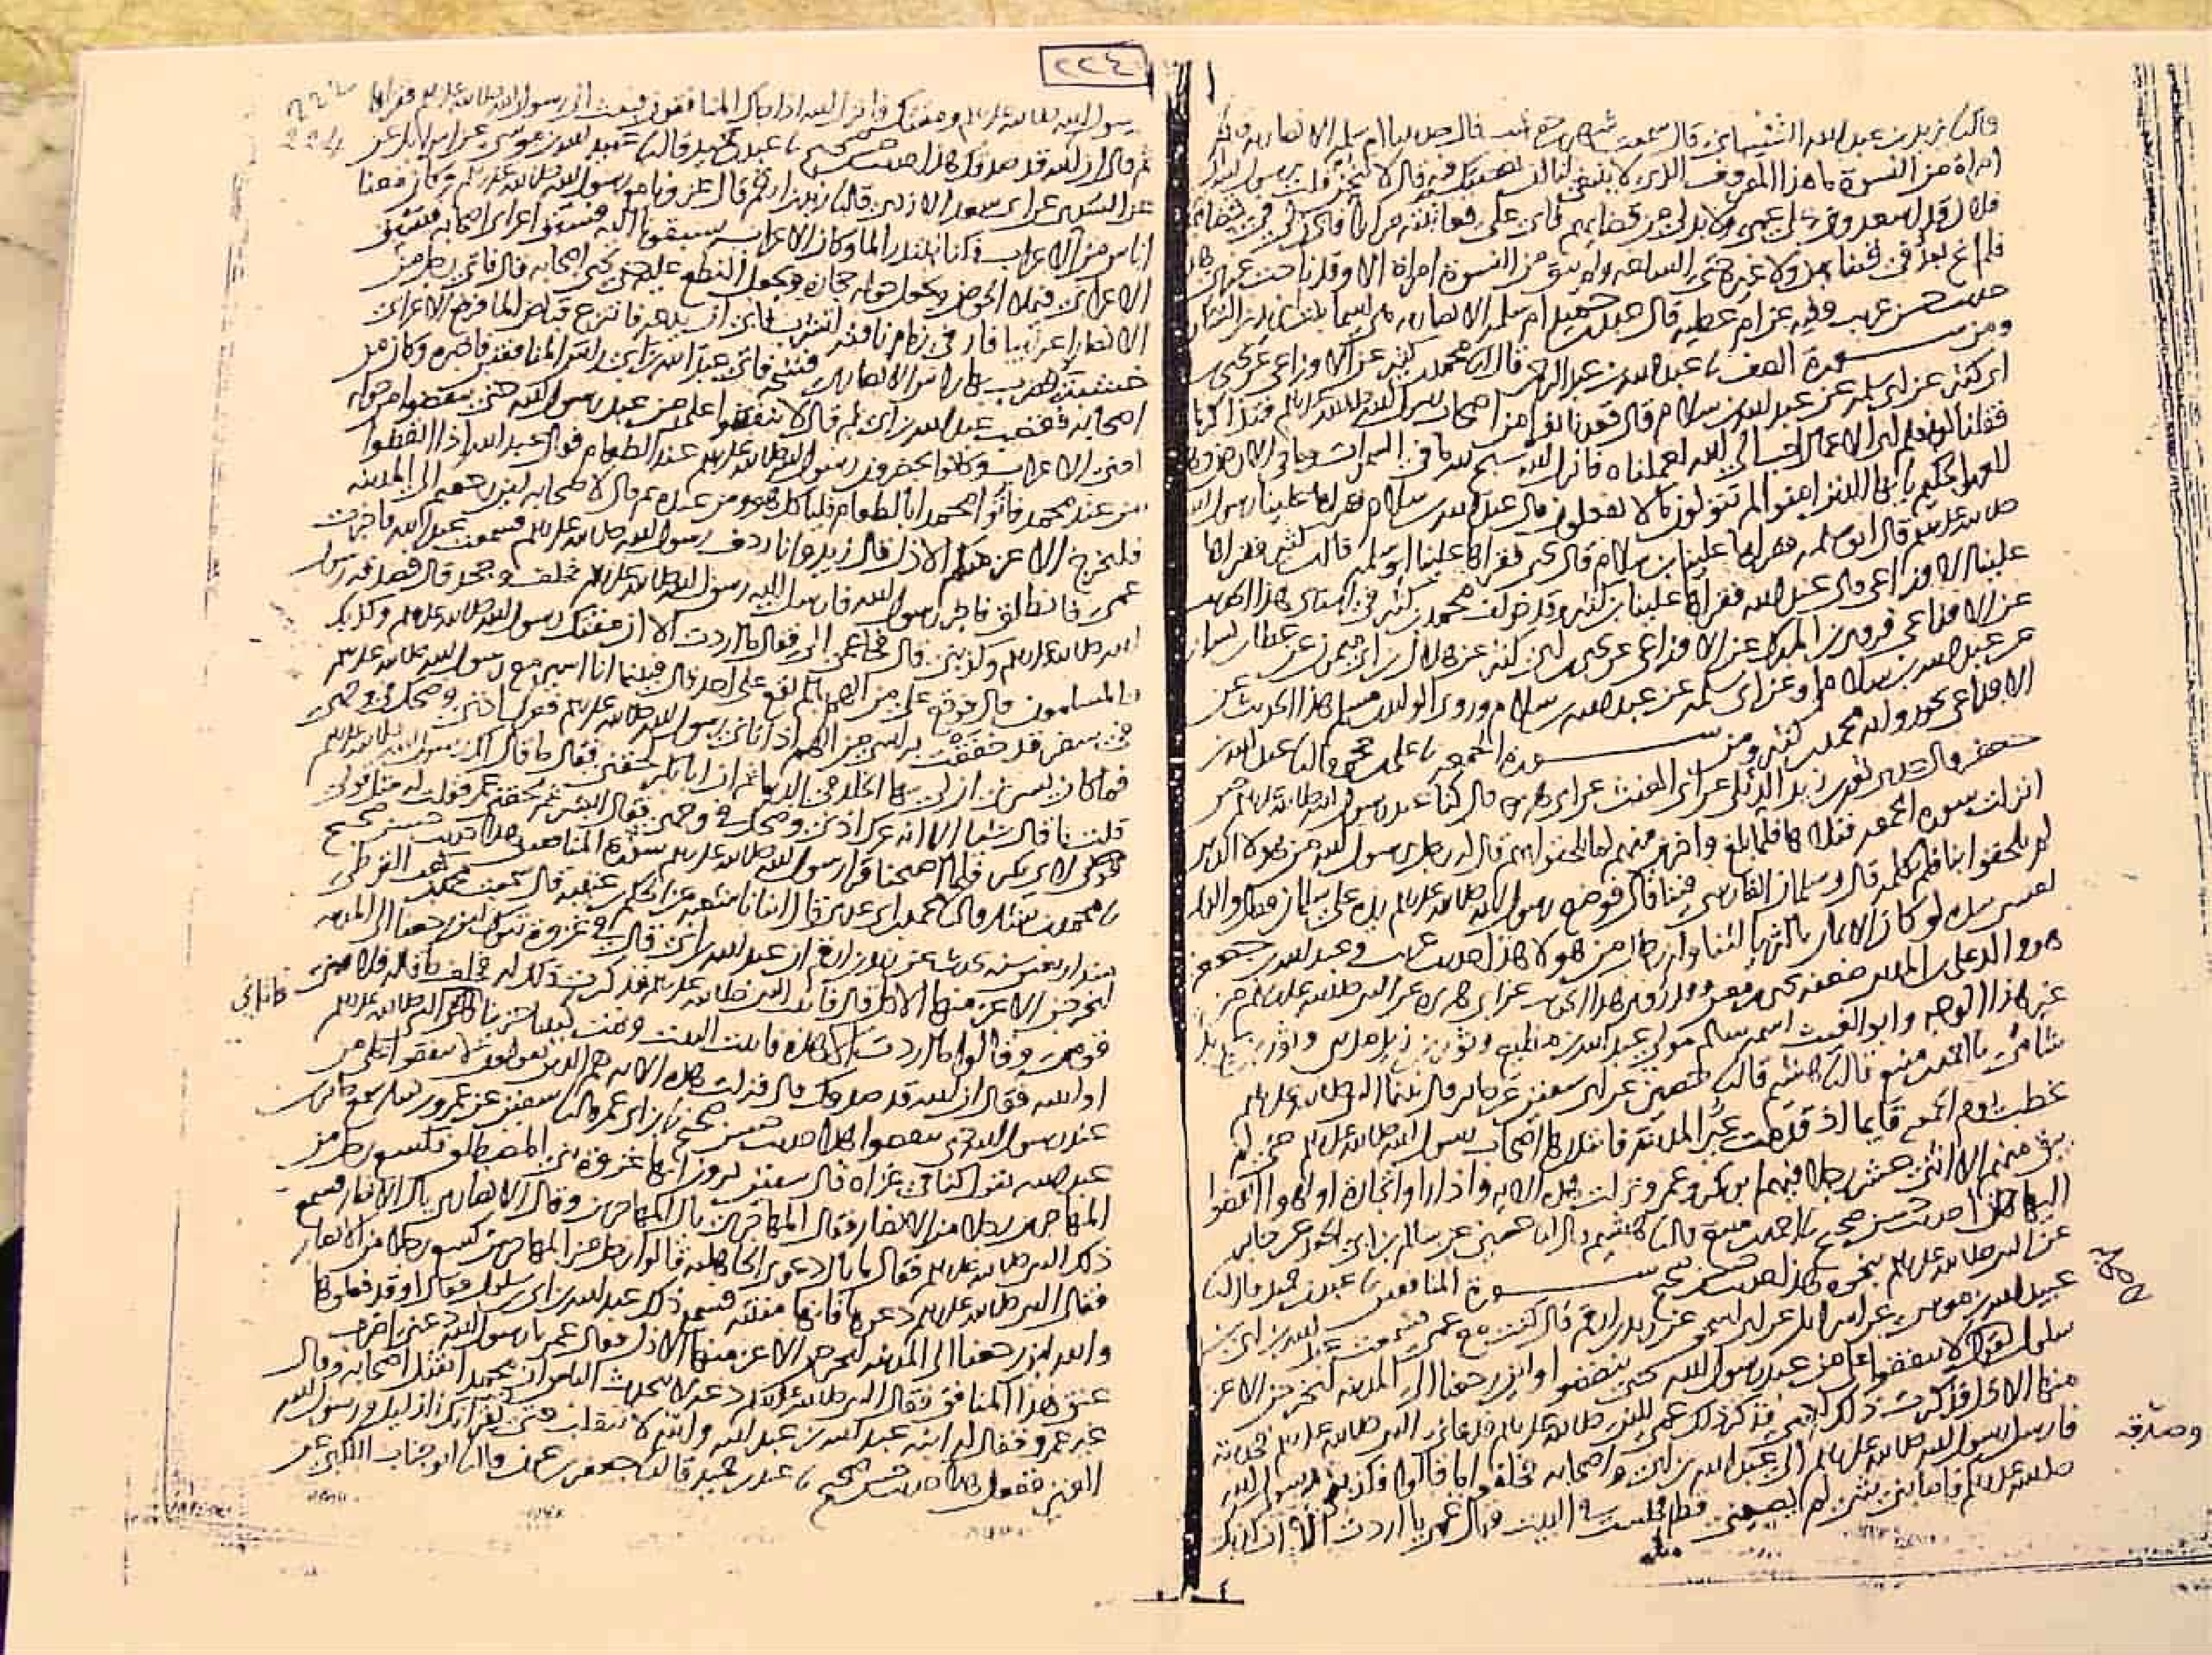 قال نا يزيد بن عبد الله الشيباني قال سمعت شهر بن حوشب قال حدثتنا ام سلمة الانصارية قالت
امراة من النسوة ما هذا المعروف الذي لا ينبغي لنا ان نعصيك فيه قال لا تنحن قلت يرسول الله
فلان قد اسعدوني على عمي ولا بد لي من قضايهم فابى علي فعاتبته مرارا فاذن لي في قضايهن
فلم انح بعد في قضايهن ولا غيره حتى الساعة ولم يبق من النسوة امراة الا وقد ناحت غيري
حديث حسن غريب وفيه عن ام عطية قال عبد بن حميد ام سلمة الانصارية هي اسما بنت يزيد بن السكن
ومن سورة الصف نا عبد الله بن عبد الرحمن قال انا محمد بن كثير عن الاوزاعي عن يحيى
ابن كثير عن ابي سلمة عن عبد الله بن سلام قال قعدنا نفر من اصحاب رسول الله صلى الله عليه وسلم فتذاكرنا
فقلنا لو نعلم اي الاعمال احب الى الله لعملناه فانزل الله سبح لله ما في السموات وما في الارض وهو
العزيز الحكيم يا ايها الذين امنوا لم تقولون ما لا تفعلون قال عبد الله بن سلام فقراها علينا رسول الله
صلى الله عليه وسلم قال ابو سلمة فقراها علينا بن سلام قال يحيى فقراها علينا ابو سلمة قال ابن كثير فقراها
علينا الاوزاعي قال عبد الله فقراها علينا بن كثير وقد خولف محمد بن كثير في اسناد هذا الحديث
عن الاوزاعي فروى بن المبرك عن الاوزاعي عن يحيى بن ابي كثير عن هلال بن ابي ميمونة عن عطا بن يسار
عن عبد الله بن سلام او عن ابي سلمة عن عبد الله بن سلام وروى الوليد بن مسلم هذا الحديث عن
الاوزاعي نحو رواية محمد بن كثير ومن سورة الجمعة نا علي بن حجر قال نا عبد الله بن
جعفر قال حدثني ثور بن زيد الديلي عن ابي الغيث عن ابي هريرة قال كنا عند رسول الله صلى الله عليه وسلم حين
انزلت سورة الجمعة فتلاها فلما بلغ واخرين منهم لما يلحقوا بهم قال له رجل يرسول الله من هولا الذين
لم يلحقوا بنا فلم يكلمه قال وسلمان الفارسي فينا قال فوضع رسول الله صلى الله عليه وسلم يده على سلمان فقال والذي
نفسي بيده لو كان الايمان بالثريا لتناوله رجال من هولا هذا حديث غريب وعبد الله بن جعفر
هو والد علي بن المديني ضعفه يحيى بن معين وقد روي هذا الحديث عن ابي هريرة عن النبي صلى الله عليه وسلم من
غير هذا الوجه وابو الغيث اسمه سالم مولى عبد الله بن مطيع وثور بن زيد مدني وثور بن يزيد
شامي نا احمد بن منيع قال نا هشيم قال نا حصين عن ابي سفين عن جابر قال بينما النبي صلى الله عليه وسلم
يخطب يوم الجمعة قايما اذ قدمت عير المدينة فابتدرها اصحاب رسول الله صلى الله عليه وسلم حتى لم
يبق منهم الا اثني عشر رجلا فيهم ابو بكر وعمر ونزلت هذه الاية واذا راوا تجارة او لهوا انفضوا
اليها هذا حديث حسن صحيح نا احمد بن منيع قال نا هشيم قال انا حصين عن سالم بن ابي الجعد عن جابر
عن النبي صلى الله عليه وسلم بنحوه هذا حديث حسن صحيح سورة المنافقين نا عبد بن حميد قال نا
عبيد الله بن موسى عن اسرايل عن ابي اسحق عن زيد بن ارقم قال كنت مع عمي فسمعت عبد الله بن ابي بن
سلول يقول لا تنفقوا على من عند رسول الله حتى ينفضوا ولين رجعنا الى المدينة ليخرجن الاعز
منها الاذل فذكرت ذلك لعمي فذكر ذلك عمي للنبي صلى الله عليه وسلم فدعاني النبي صلى الله عليه وسلم فحدثته
فارسل رسول الله صلى الله عليه وسلم الى عبد الله بن ابي واصحابه فحلفوا ما قالوا فكذبني رسول الله
وصدقه
صلى الله عليه وسلم فاصابني شي لم يصبني قط فجلست في البيت فقال عمي ما اردت الا ان كذبك
٢٢٤
224
رسول الله صلى الله عليه وسلم ومقتك فانزل الله اذا جاك المنافقون فبعث الي رسول الله صلى الله عليه وسلم فقراها
ثم قال ان الله قد صدقك هذا حديث حسن صحيح نا عبد بن حميد قال نا عبيد الله بن موسى عن اسرايل عن
عن السدي عن ابي سعد الازدي قال نا زيد بن ارقم قال غزونا مع رسول الله صلى الله عليه وسلم وكان معنا
اناس من الاعراب فكنا نبتدر الما وكان الاعراب يسبقونا اليه فسبق اعرابي اصحابه فيسبق
الاعرابي فيملا الحوض ويجعل حوله حجارة ويجعل النطع عليه حتى يجي اصحابه قال فاتى رجل من
الانصار اعرابيا فارخى زمام ناقته لتشرب فابى ان يدعه فانتزع قباض الما فرفع الاعرابي
خشبته فضرب بها راس الانصاري فشجه فاتى عبد الله بن ابي راس المنافقين فاخبره وكان من
اصحابه فغضب عبد الله بن ابي ثم قال لا تنفقوا على من عند رسول الله حتى ينفضوا من حوله
يعني الاعراب وكانوا يحضرون رسول الله صلى الله عليه وسلم عند الطعام فقال عبد الله اذا انفضوا
من عند محمد فاتوا محمدا بالطعام فلياكل هو ومن عنده ثم قال لاصحابه لين رجعتم الى المدينة
فليخرج الاعز منكم الاذل قال زيد وانا ردف رسول الله صلى الله عليه وسلم فسمعت عبد الله فاخبرت
عمي فانطلق فاخبر رسول الله فارسل اليه رسول الله صلى الله عليه وسلم فحلف وجحد قال فصدقه رسول
الله صلى الله عليه وسلم وكذبني قال فجا عمي الي فقال ما اردت الا ان مقتك رسول الله صلى الله عليه وسلم وكذبك
والمسلمون قال فوقع علي من الهم ما لم يقع على احد قال فبينما انا اسير مع رسول الله صلى الله عليه وسلم
في سفر قد خفقت براسي من الهم اذ اتاني رسول الله صلى الله عليه وسلم فعرك اذني وضحك في وجهي
فما كان يسرني ان لي بها الخلد في الدنيا ثم ان ابا بكر لحقني فقال ما قال لك رسول الله صلى الله عليه وسلم
قلت ما قال شيا الا انه عرك اذني وضحك في وجهي فقال ابشر ثم لحقني عمر فقلت له مثل قولي
لابي بكر فلما اصبحنا قرا رسول الله صلى الله عليه وسلم سورة المنافقين هذا حديث حسن صحيح
نا محمد بن بشار قال نا محمد بن ابي عدي قال انبانا شعبة عن الحكم بن عتيبة قال سمعت محمد بن كعب القرظي
منذ اربعين سنة يحدث عن زيد بن ارقم ان عبد الله بن ابي قال في غزوة تبوك لين رجعنا الى المدينة
ليخرجن الاعز منها الاذل قال فاتيت النبي صلى الله عليه وسلم فذكرت ذلك له فحلف ما قاله فلامني
قومي وقالوا ما اردت الا هذه فاتيت البيت ونمت كييبا حزينا فاتاني النبي صلى الله عليه وسلم
فاتاني
او اتيته فقال ان الله قد صدقك قال فنزلت هذه الاية هم الذين يقولون لا تنفقوا على من
عند رسول الله حتى ينفضوا هذا حديث حسن صحيح نا بن ابي عمر قال نا سفين عن عمرو بن دينار سمع جابر بن
عبد الله يقول كنا في غزاة قال سفين يرون انها غزوة بني المصطلق فكسع رجل من
المهاجرين رجلا من الانصار فقال المهاجري يال المهاجرين وقال الانصاري يال الانصار فسمع
ذلك النبي صلى الله عليه وسلم فقال ما بال دعوى الجاهلية قالوا رجل من المهاجرين كسع رجلا من الانصار
فقال النبي صلى الله عليه وسلم دعوها فانها منتنة فسمع ذلك عبد الله بن ابي بن سلول فقال او قد فعلوها
والله لين رجعنا الى المدينة ليخرجن الاعز منها الاذل فقال عمر يا رسول الله دعني اضرب
عنق هذا المنافق فقال النبي صلى الله عليه وسلم دعه لا يتحدث الناس ان محمدا يقتل اصحابه وقال
غير عمرو فقال له ابنه عبد الله بن عبد الله والله لا تنقلب حتى تقر انك الذليل ورسول الله
العزيز ففعل هذا حديث حسن صحيح نا عبد بن حميد قال نا جعفر بن عون قال نا ابو جناب الكلبي عن